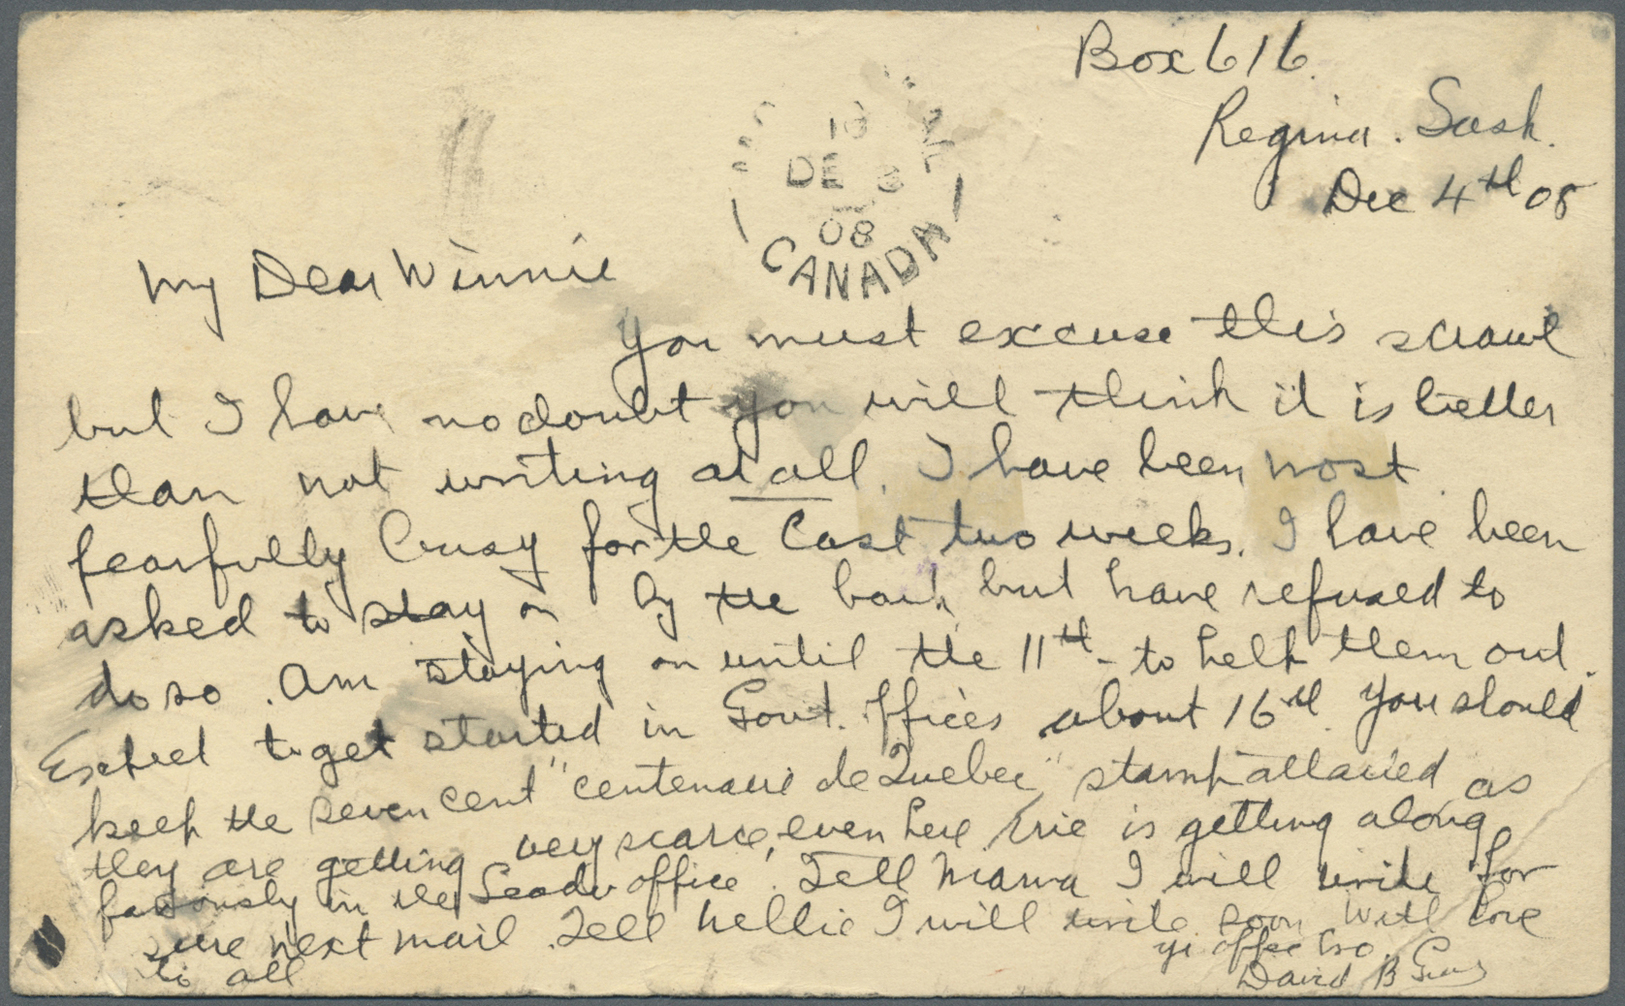 Box 616.
Regina. Sask.
Dec 4th 08
10
DE 3
08
CANADA
My Dear Winnie
You must excuse this scrawl
but I have no doubt you will think it is better
than not writing at all. I have been most
fearfully busy for the last two weeks. I have been
asked to stay on by the bank but have refused to
do so. Am staying on until the 11th - to help them out.
Expect to get started in Govt. Offices about 16th. You should
keep the seven cent "centenaire de Quebec" stamp attached as
they are getting very scarce, even here. Eric is getting along
famously in the Leader office. Tell Mama I will write for
sure next mail. Tell Nellie I will write soon. With love
to all
yr affec bro.
David B